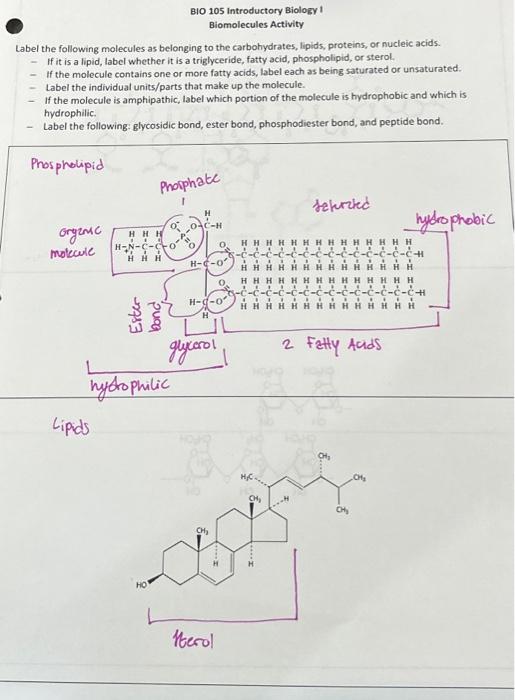 BIO 105 Introductory Biology I
Biomolecules Activity
Label the following molecules as belonging to the carbohydrates, lipids, proteins, or nucleic acids.
– If it is a lipid, label whether it is a triglyceride, fatty acid, phospholipid, or sterol.
– If the molecule contains one or more fatty acids, label each as being saturated or unsaturated.
– Label the individual units/parts that make up the molecule.
– If the molecule is amphipathic, label which portion of the molecule is hydrophobic and which is
hydrophilic.
– Label the following: glycosidic bond, ester bond, phosphodiester bond, and peptide bond.
Phospholipid
Phosphate
organic
molecule
hydrophobic
H
O C-H
H H H
H-N-C-C-O P O
H H H
O H H H H H H H H H H H H H H
H-C-O C-C-C-C-C-C-C-C-C-C-C-C-C-C-C-H
H H H H H H H H H H H H H H
O H H H H H H H H H H H H H H
H-C-O C-C-C-C-C-C-C-C-C-C-C-C-C-C-C-H
H H H H H H H H H H H H H H H
Ester
bond
glycerol
2 Fatty Acids
hydrophilic
Lipids
CH₃
H₃C
CH₃
CH₃
H
CH₃
CH₃
H
H
HO
sterol